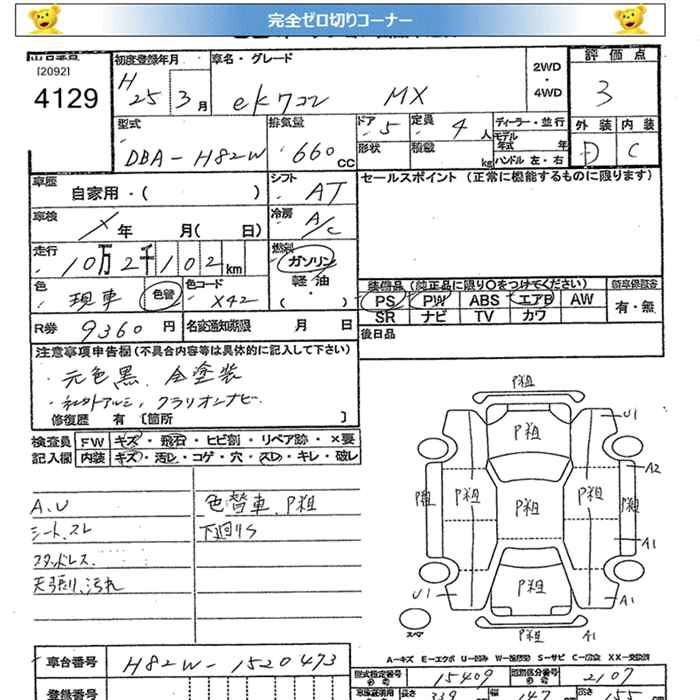 完全ゼロ切りコーナー
[2092]
4129
初度登録年月
H 25年 3月
車名・グレード
ekワゴン MX
2WD
・
4WD
評価点
3
型式
DBA-H82W
排気量
660 CC
ドア 5
定員 4人
形状
積載 kg
ディーラー・並行
モデル年式 年
ハンドル 左・右
外装 内装
D C
車歴
自家用・( )
シフト
AT
セールスポイント (正常に機能するものに限ります)
車検
年 月( 日)
冷房
A/C
走行
10万2千102km
燃料
ガソリン
軽・油
・( )
色
現車 色替
色コード
X42
装備品(純正品に限り○をつけてください)
PS PW ABS エアB AW
SR ナビ TV カワ
新車保証書
有・無
R券 9360 円
名変通知期限 月 日
後日品
注意事項申告欄(不具合内容等は具体的に記入して下さい)
・元色黒、全塗装
・社外アルミ、クラリオンナビ
修復歴 有 [箇所 ]
検査員 FW キズ・飛石・ヒビ割・リペア跡・×要
記入欄 内装 キズ・汚レ・コゲ・穴・スレ・キレ・破レ
A.U
シート、スレ
スタッドレス
天張り、汚れ
色替車、P粗
下回りS
P粗
P粗
U1
A2
P粗 P粗 P粗 P粗 P粗
A1
P粗
U1
A1
スペア
P粗 A1
A-キズ E-エクボ U-凹み W-補修跡 S-サビ C-腐食 XX-交換済
車台番号 H82W-1520473
型式指定番号 15409
類別区分番号 2107
登録番号
長さ 339 幅 147 高さ 155